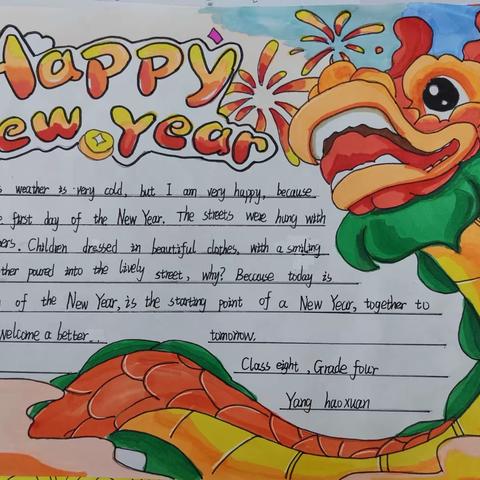 Happy
ew Year
s weather is very cold, but I am very happy, because
e first day of the New Year. The streets were hung with
ers. Children dressed in beautiful clothes, with a smiling
ther poured into the lively street, why? Because today is
of the New Year, is the starting point of a New Year, together to
welcome a better..
tomorrow.
Class eight, Grade four
Yang haoxuan